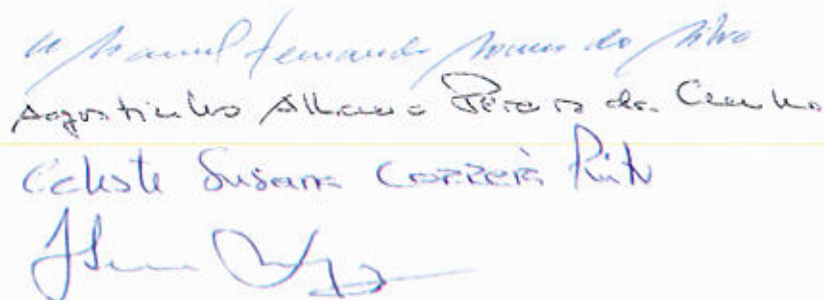 Manuel Fernando Soares da Silva
Agostinho Albano Pereira da Cunha
Celeste Susana Correia Pinto